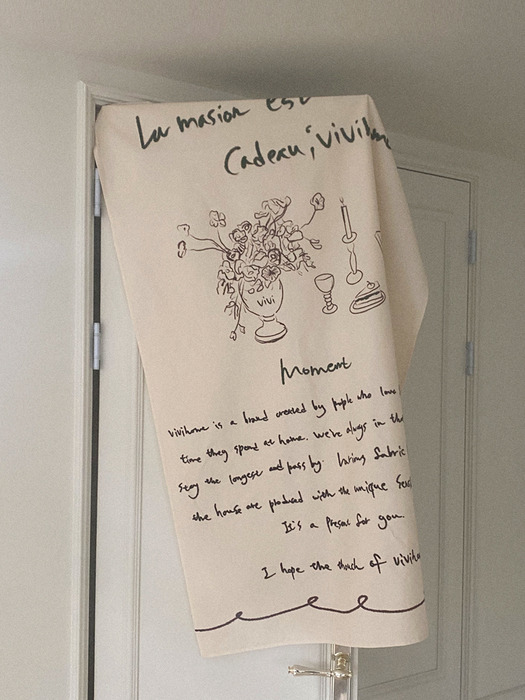 La masion est
Cadeau; vivihome
vivi
Moment
vivihome is a brand created by people who love
time they spend at home. We're always in the
stay the longest and pass by. living fabric
the house are produced with the unique
It's a present for you.
I hope the touch of